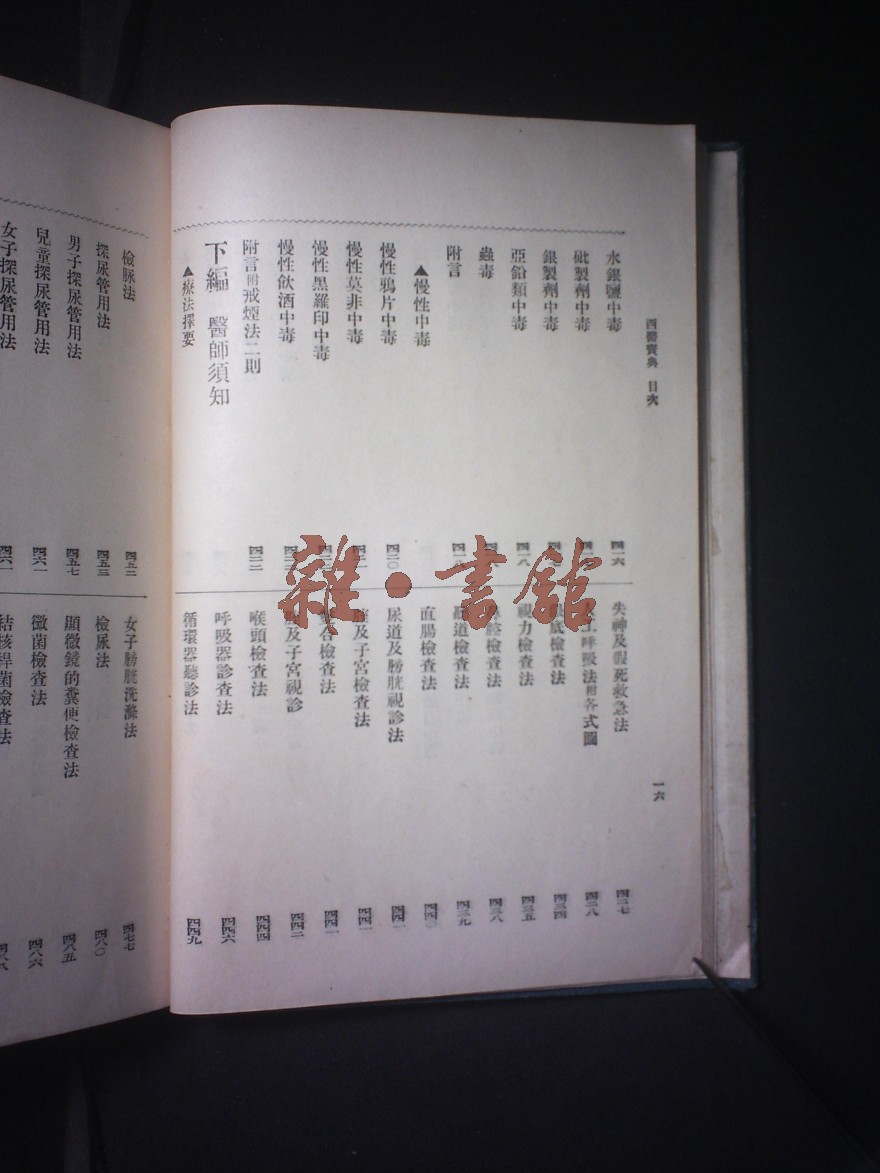 西醫寶典 目次
一六
水銀鹽中毒 四一六
砒製劑中毒
銀製劑中毒
亞鉛類中毒 四一八
蟲毒
附言 四一八
▲慢性中毒
慢性鴉片中毒 四二〇
慢性莫非中毒
慢性黑羅印中毒
慢性飲酒中毒
附言附戒煙法二則 四二三
下編 醫師須知
▲療法撰要
失神及假死救急法 四二七
工呼吸法附各式圖 四二八
底檢查法 四三四
視力檢查法 四三五
檢查法 四三八
道檢查法 四三九
直腸檢查法 四四〇
尿道及膀胱視診法 四四一
腟及子宮檢查法 四四一
合檢查法 四四一
及子宮視診 四四二
喉頭檢查法 四四四
呼吸器診查法 四四六
循環器聽診法 四四九
檢脉法 四五二
探尿管用法 四五三
男子探尿管用法 四五七
兒童探尿管用法 四六一
女子探尿管用法 四六一
女子膀胱洗滌法 四七七
檢尿法 四八〇
顯微鏡的糞便檢查法 四八五
黴菌檢查法 四八六
結核桿菌檢查法 四八八
雜·書館